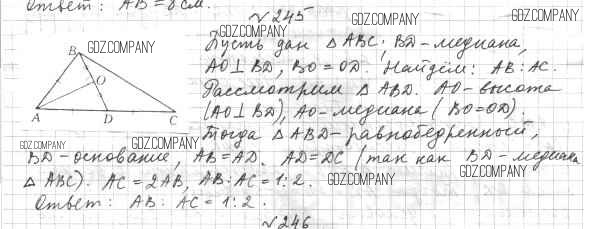 Ответ: AB = 8 см.
№ 245
GDZ.COMPANY
GDZ.COMPANY
GDZ.COMPANY
GDZ.COMPANY
B
O
A
D
C
Пусть дан △ABC; BD-медиана,
AO⊥BD, BO=OD. Найдём: AB:AC.
Рассмотрим △ABD. AO-высота
(AO⊥BD), AO-медиана (BO=OD).
GDZ.COMPANY
GDZ.COMPANY
Тогда △ABD-равнобедренный,
BD-основание, AB=AD. AD=DC (так как BD-медиана
GDZ.COMPANY
GDZ.COMPANY
△ABC). AC=2AB, AB:AC=1:2.
Ответ: AB:AC=1:2.
№ 246